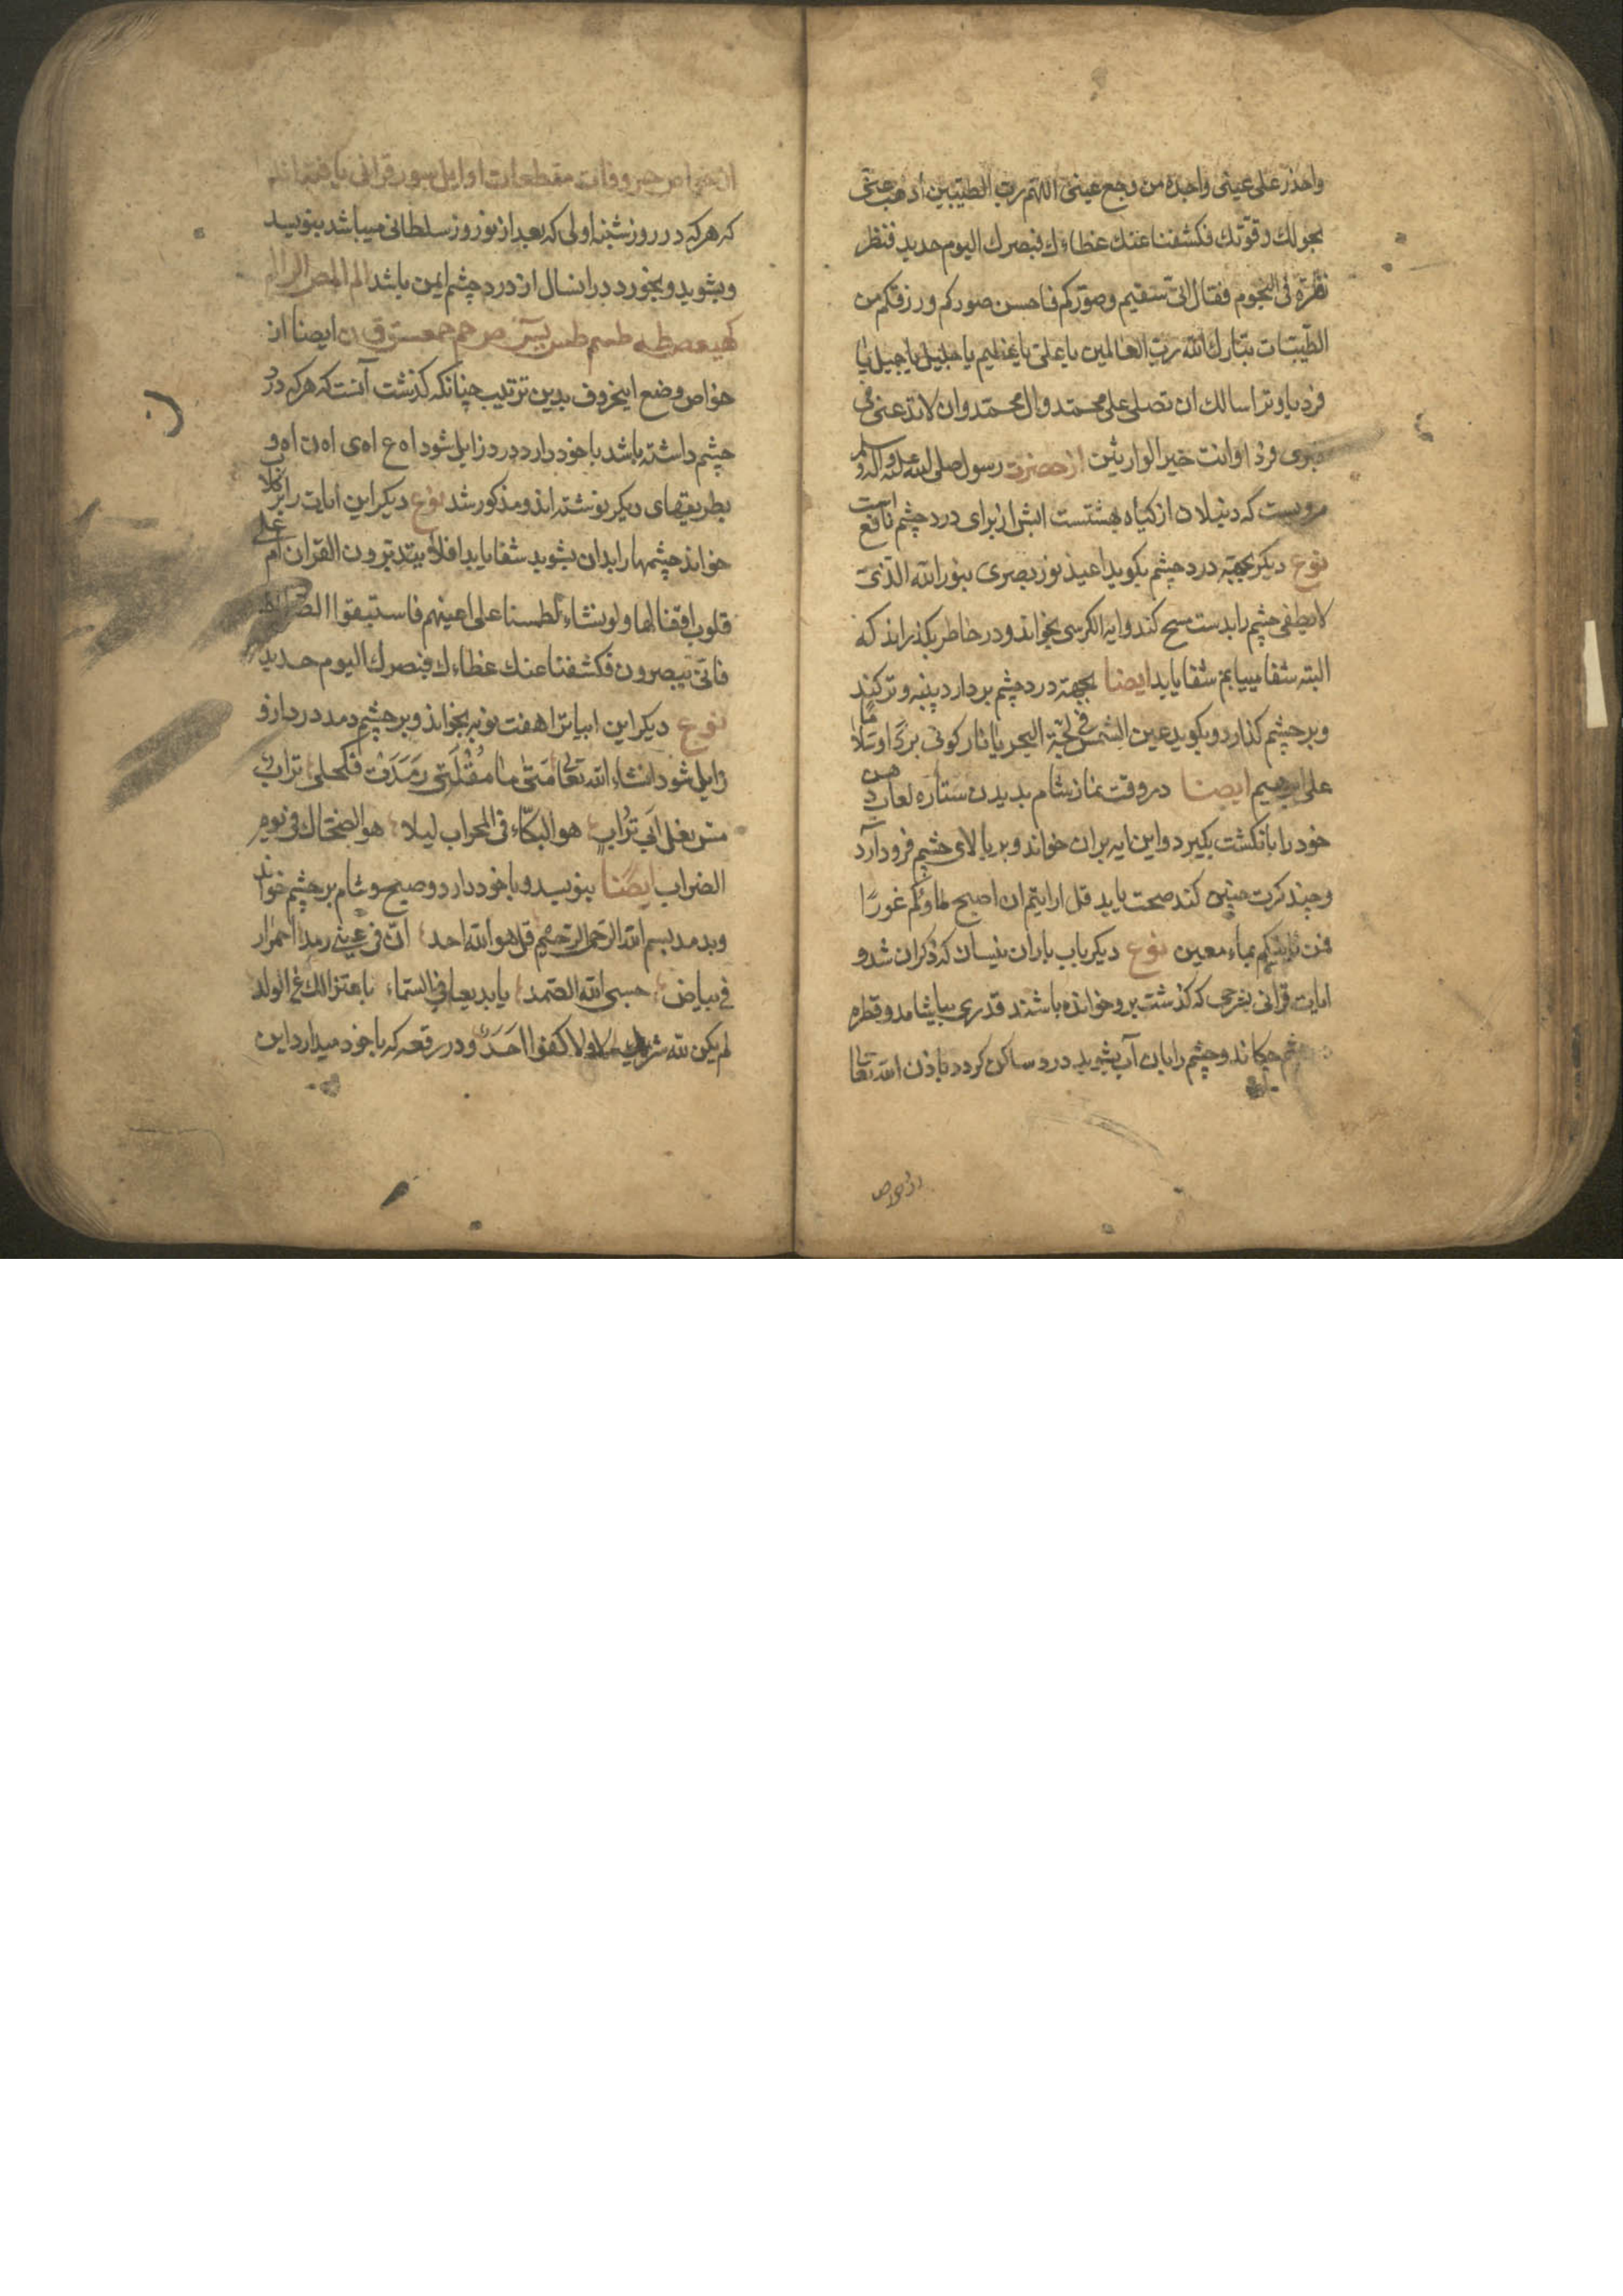 واحذر علی عینی واجده من وجع عینی اللهم رب الطیبین اذهب عنی
بحولك وقوتك فکشفنا عنك غطاءك فبصرك الیوم حدید فنظر
نظرة فی النجوم فقال انی سقیم وصورکم فاحسن صورکم ورزقکم من
الطیبات تبارك الله رب العالمین یا علی یا عظیم یا جلیل یا جمیل یا
فرد یا وتر اسالك ان تصلی علی محمد وال محمد وان لاتدعنی فی
قبری فردا وانت خیر الوارثین از حضرت رسول صلی الله علیه وآله وسلم
مرویست که دنبلان از کیاه بهشتست ابش از برای درد چشم نافع است
نوع دیکر بجهة درد چشم بکوید اعیذ نور بصری بنور الله الذی
لایطفی چشم را بدست مسح کند وایة الکرسی بخواند ودر خاطر بکذراند که
البته شفا مییابم شفا یابد ایضا بجهة درد چشم بردارد پنبه و تر کند
وبر چشم کذارد وبکوید عین الشمس فی لجة البحر یا نار کونی بردا وسلاما
علی ابرهیم ایضا در وقت نماز شام بدیدن ستاره لعاب دهن
خود را بانکشت بکیرد واین ایه بران خواند وبر بالای چشم فرود آرد
وچند کرت چنین کند صحت یابد قل ارایتم ان اصبح ماؤکم غورا
فمن یاتیکم بماء معین نوع دیکر باب باران نیسان که ذکر ان شد و
ایات قرانی بشرحی که کذشت برو خوانده باشند قدری بیاشامد و قطره
چشم چکاند وچشم را بان آب بشوید درد ساکن کردد باذن الله تعالی
از خواص
از خواص حروفات مقطعات اوایل سور قرانی یافته اند
که هر که در روز شنبه اولی که بعد از نوروز سلطانی میباشد بنویسد
وبشوید وبخورد در انسال از درد چشم ایمن باشد الم المص الر المر
کهیعص طه طسم طس یس ص حم حمعسق ق ن ایضا از
خواص وضع اینحروف بدین ترتیب چنانکه کذشت آنست که هر که درد
چشم داشته باشد با خود دارد درد زایل شود اه ع اه ی اه ن اه و
بطریقهای دیکر نوشته اند ومذکور شد نوع دیکر این ایات را بر کلاب
خواند چشمها را بدان بشوید شفا یابد افلا یتدبرون القران ام علی
قلوب اقفالها ولو نشاء لطمسنا علی اعینهم فاستبقوا الصراط
فانی یبصرون فکشفنا عنك غطاءك فبصرك الیوم حدید
نوع دیکر این ابیاترا هفت نوبه بخواند و بر چشم دمد درد ازو
زایل شود انشاء الله تعالی متی ما مقلتی رمدت فکحلی تراب
مس نعل ابی تراب هو البکاء فی المحراب لیلا هو الضحاك فی یوم
الضراب ایضا بنویسد وبا خود دارد وصبح وشام بر چشم خواند
وبدمد بسم الله الرحمن الرحیم قل هو الله احد ان فی عینی رمدا احمرار
فی بیاض حسبی الله الصمد یا بدیعا فی السماء عن الولد
لم یکن لله شریك ولا کفوا احد ودر رقعه که با خود میدارد این